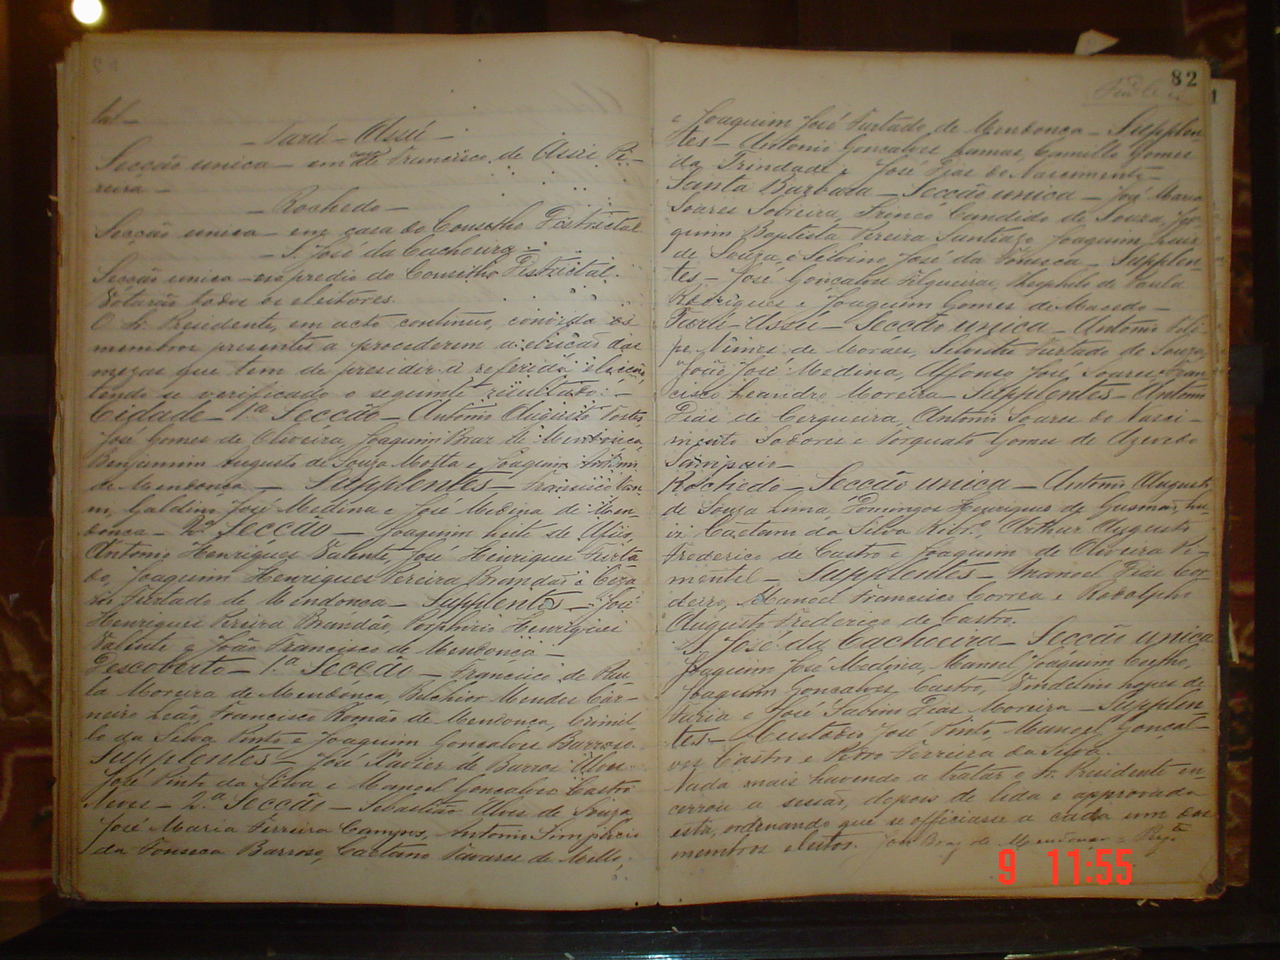 tal—
— Tarú-Assú —
Secção unica — em Francisco de Assis Pe-
reira —
— Rochedo —
Secção unica — em casa do Conselho Districtal
— S. José da Cachoeira —
Secção unica — no predio do Conselho Districtal.
Votarão todos os eleitores.
O Sr. Presidente, em acto continuo, convida os
membros presentes a procederem a eleição das
mezas que tem de presidir a referida eleição,
tendo se verificado o seguinte resultado: —
Cidade — 1ª Secção — Antonio Augusto
José Gomes de Oliveira, Joaquim Braz de Mendonça,
Benjamim Augusto de Souza Motta e Joaquim Antonio
de Mendonça — Supplentes — Francisco
Galdino José Medina e José Medina de Men-
donça — 2ª Secção — Joaquim Leite de
Antonio Henriques Valente, José Henriques Furta-
do, Joaquim Henriques Pereira Brandão e Ceza-
rio Furtado de Mendonça — Supplentes — José
Henriques Pereira Brandão, Porphirio Henriques
Valente e João Francisco de Mendonça —
Descoberto — 1ª Secção — Francisco de Pau-
la Moreira de Mendonça, Belchior Mendes Car-
neiro Leão, Francisco Romão de Mendonça, Camil-
lo da Silva Pinto e Joaquim Gonçalves Barroso.
Supplentes — José Xavier de Barros
José Pinto da Silva e Manoel Gonçalves Castro
Neves — 2ª Secção — Sebastião Alves de Souza,
José Maria Ferreira Campos, Antonio Simplicio
da Fonseca Barroso, Caetano Tavares de Mello,
82
e Joaquim José Furtado de Mendonça — Supplen-
tes — Antonio Gonçalves Lamas, Camillo Gomes
da Trindade e José Dias do Nascimento —
Santa Barbara — Secção unica — José Maria
Soares Sobreira, Candido de Souza, Joa-
quim Baptista Pereira Santiago, Joaquim Luiz
de Souza e Silvino José da Fonseca — Supplen-
tes — José Gonçalves Filgueiras, Theophilo de Paula
Rodrigues e Joaquim Gomes de Macedo —
Tarú-Assú — Secção unica — Antonio Feli-
ppe Nunes de Moraes, Silvestre Furtado de Souza,
João José Medina, Affonso José Soares e Fran-
cisco Leandro Moreira — Supplentes — Antonio
Dias de Cerqueira, Antonio Soares do Nasci-
mento e Torquato Gomes de Azevedo
Sampaio —
Rochedo — Secção unica — Antonio Augusto
de Souza Lima, Domingos Henriques de Gusmão, Lu-
iz Caetano da Silva Ribrº, Arthur Augusto
Frederico de Castro e Joaquim de Oliveira Pi-
mentel — Supplentes — Manoel Dias Cor-
deiro, Manoel Francisco Correa e Rodolpho
Augusto Frederico de Castro.
S. José da Cachoeira — Secção unica
Joaquim José Medina, Manoel Joaquim Coelho,
Joaquim Gonçalves Castro, Vindelino Lopes de
Faria e José Sabino Dias Moreira — Supplen-
tes — Eustachio José Pinto, Manoel Gonçal-
ves Castro e Pedro Ferreira da Silva.
Nada mais havendo a tratar o Sr. Presidente en-
cerrou a sessão, depois de lida e approvada
esta, ordenando que se officiasse a cada um dos
membros eleitos. José Braz de Mendonça
9 11:55